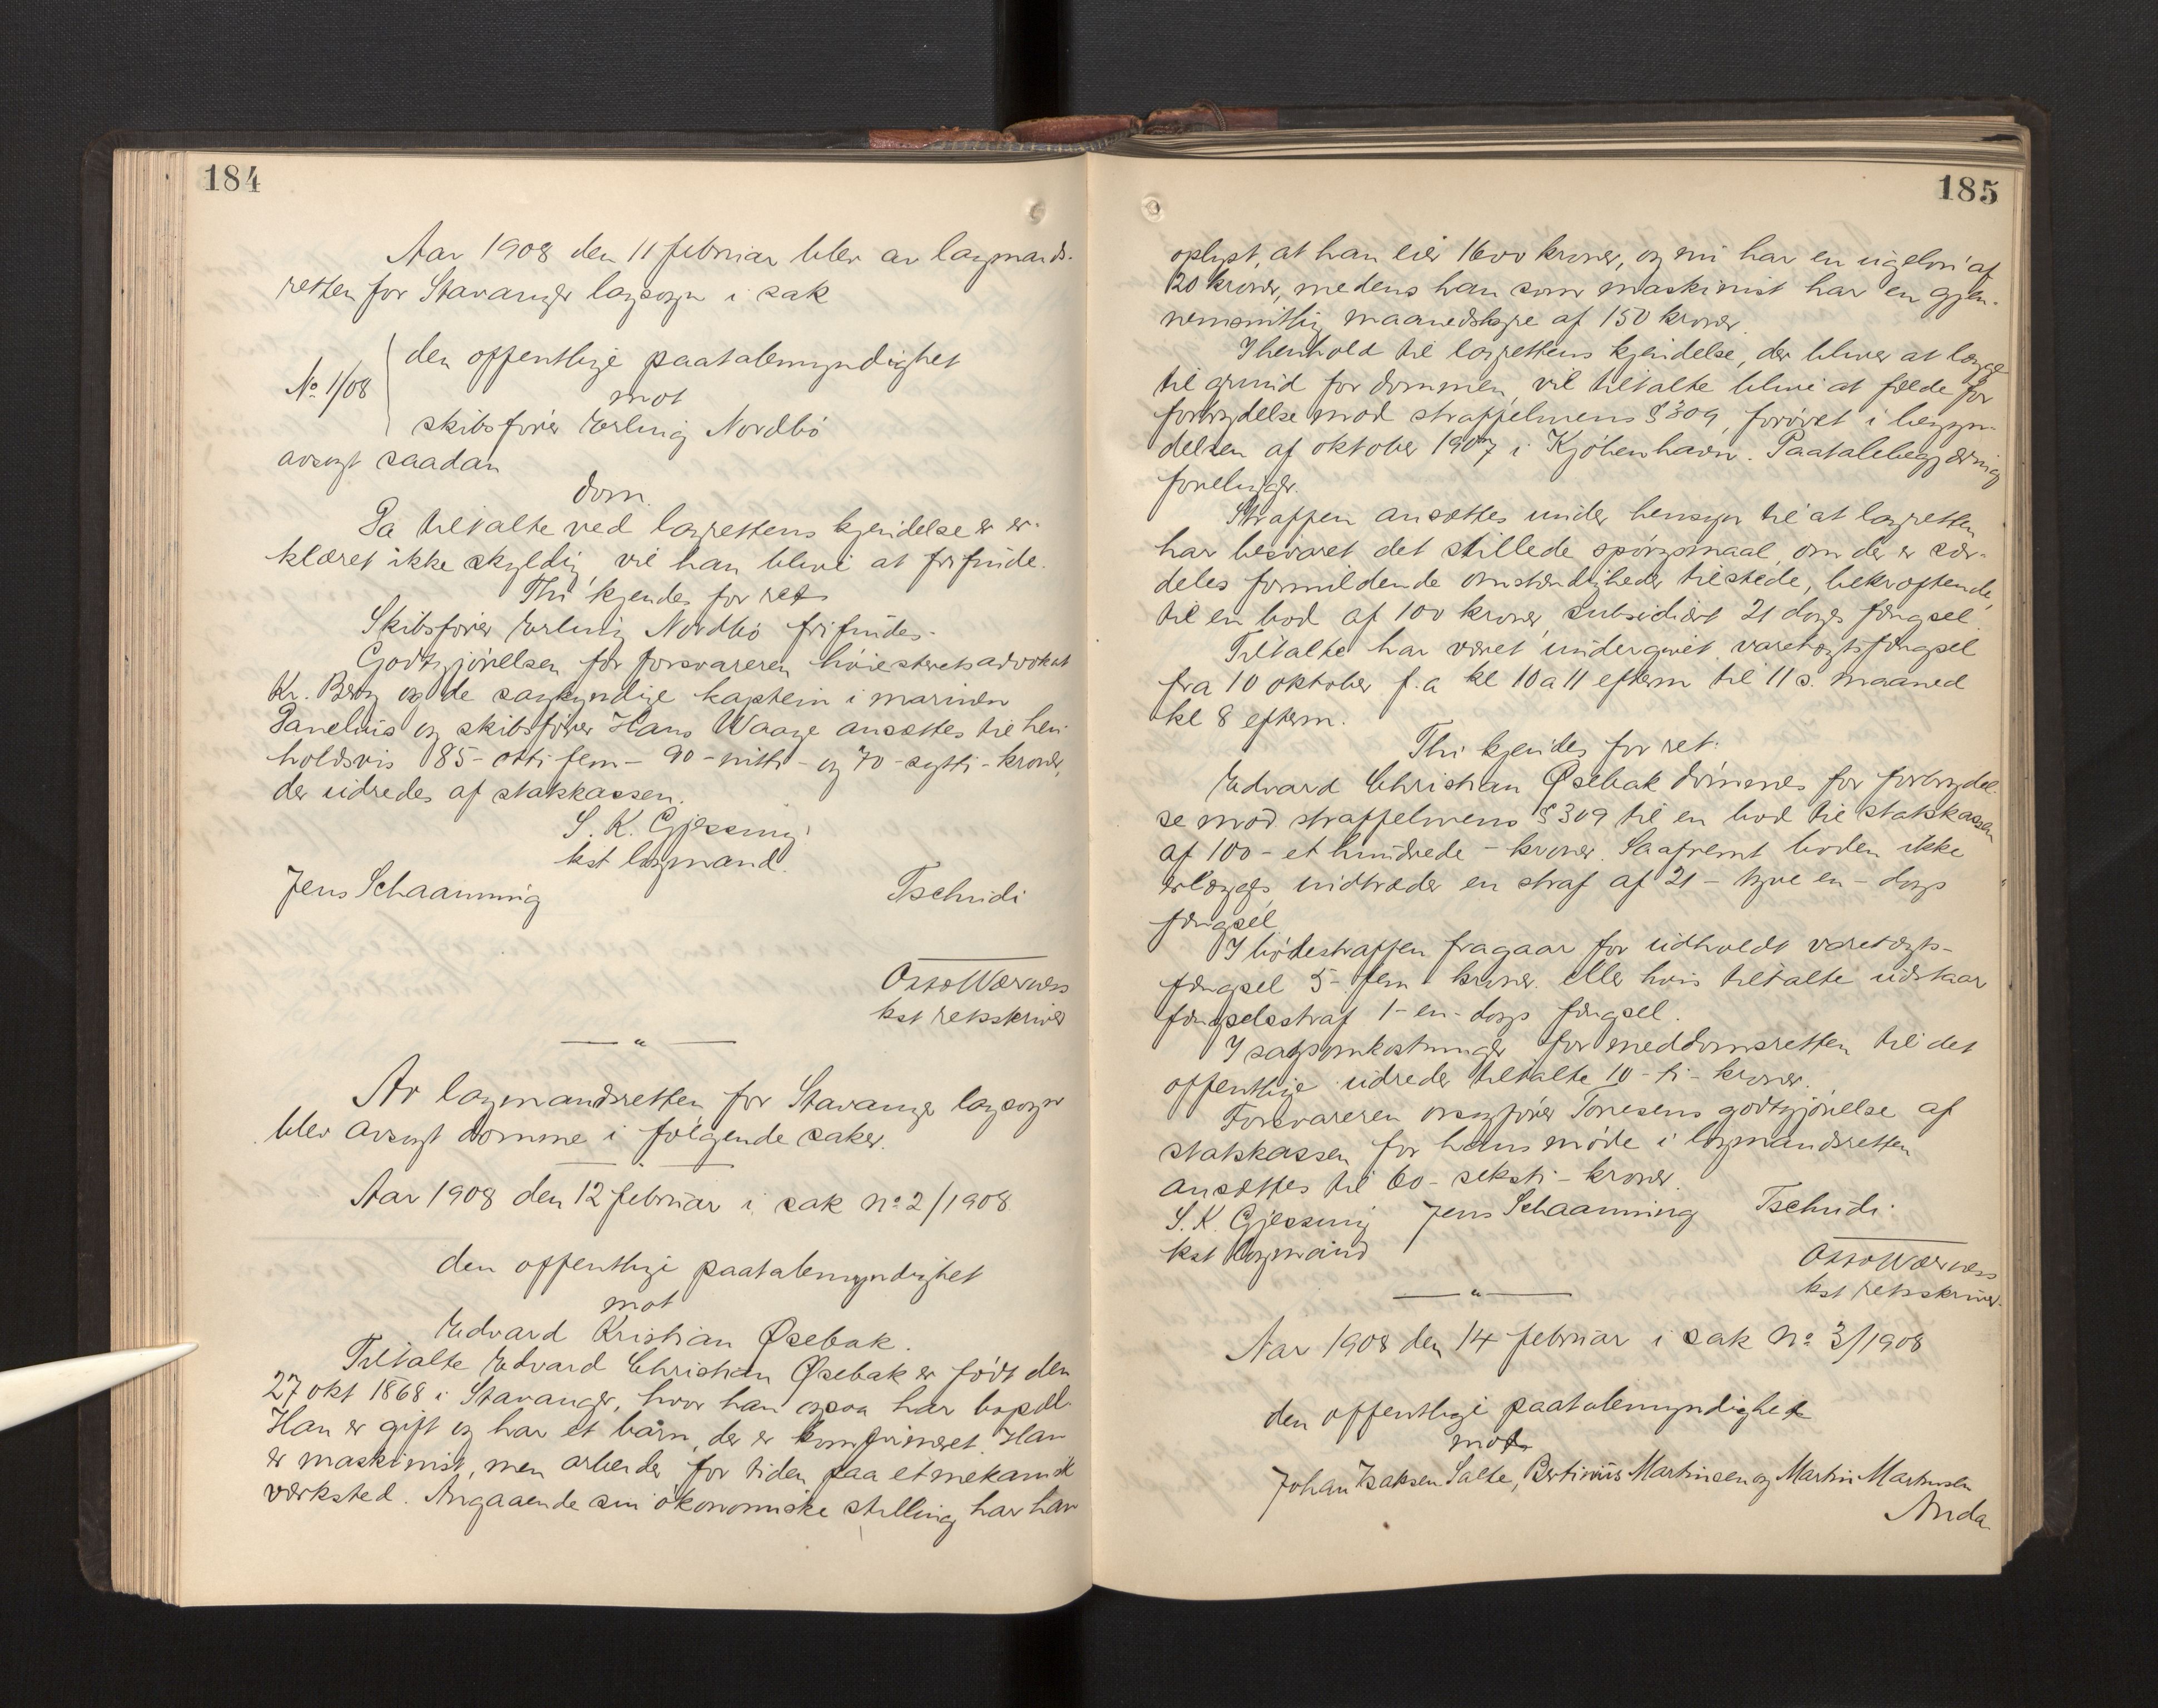 184
Aar 1908 den 11 februar blev av lagmands-
retten for Stavanger lagsogn i sak
den offentlige paatalemyndighet
No 1/08
mot
skibsfører Erling Nordbö
avsagt saadan
dom.
Da tiltalte ved lagrettens kjendelse er er-
klæret ikke skyldig, vil han blive at frifinde.
Thi kjendes for ret
Skibsfører Erling Nordbö frifindes.
Godtgjörelsen for forsvareren höiesteretsadvokat
Kr. Berg og de sagkyndige kaptein i marinen
Danelius og skibsfører Hans Waage ansættes til hen-
holdsvis 85 - otti fem - 90 - nitti - og 70 - sytti - kroner,
der udredes af statskassen.
S. K. Gjessing
kst lagmand.
Jens Schaanning
Tschudi
Otto Wærness
kst retsskriver
— " —
Av lagmandsretten for Stavanger lagsogn
blev avsagt domme i følgende saker.
Aar 1908 den 12 februar i sak no 2/1908.
den offentlige paatalemyndighet
mot
Edvard Kristian Øsebak.
Tiltalte Edvard Christian Øsebak er født den
27 okt 1868 i Stavanger, hvor han ogsaa har bopæl.
Han er gift og har et barn, der er konfirmeret. Han
er maskinist, men arbeider for tiden paa et mekanisk
værksted. Angaaende sin økonomiske stilling har han
185
oplyst, at han eier 1600 kroner, og nu har en ugelön af
20 kroner, medens han som maskinist har en gjen-
nemsnitlig maanedshyre af 150 kroner.
I henhold til lagrettens kjendelse, der bliver at lægge
til grund for dommen, vil tiltalte blive at fælde for
forbrydelse mod straffelovens § 309, forövet i begyn-
delsen af oktober 1907 i Kjöbenhavn. Paatalebegjæring
foreligger.
Straffen ansættes under hensyn til at lagretten
har besvaret det stillede spörgsmaal, om der er sær-
deles formildende omstændigheder tilstede, bekræftende,
til en bod af 100 kroner, subsidiært 21 dages fængsel.
Tiltalte har været undergivet varetægtsfængsel
fra 10 oktober f.a kl 10 a 11 efterm til 11 s. maaned
kl 8 efterm.
Thi kjendes for ret:
Edvard Christian Øsebak dömmes for forbrydel-
se mod straffelovens § 309 til en bod til statskassen
af 100 - et hundrede - kroner. Saafremt boden ikke
erlægges, indtræder en straf af 21 - tyve en - dags
fængsel.
I bödestraffen fragaar for udholdt varetægts-
fængsel 5 - fem - kroner eller hvis tiltalte udstaar
fængselsstraf 1 - en - dags fængsel.
I sagsomkostninger for meddomsretten til det
offentlige udreder tiltalte 10 - ti - kroner.
Forsvareren sagförer Torresens godtgjörelse af
statskassen for hans möde i lagmandsretten
ansættes til 60 - seksti - kroner.
S. K. Gjessing Jens Schaanning Tschudi.
kst lagmand
Otto Wærness
kst retsskriver.
— " —
Aar 1908 den 14 februar i sak no 3/1908
den offentlige paatalemyndighet
mot
Johan Isaksen Salte, Bertinius Martinsen og Martin Martinsen
Anda